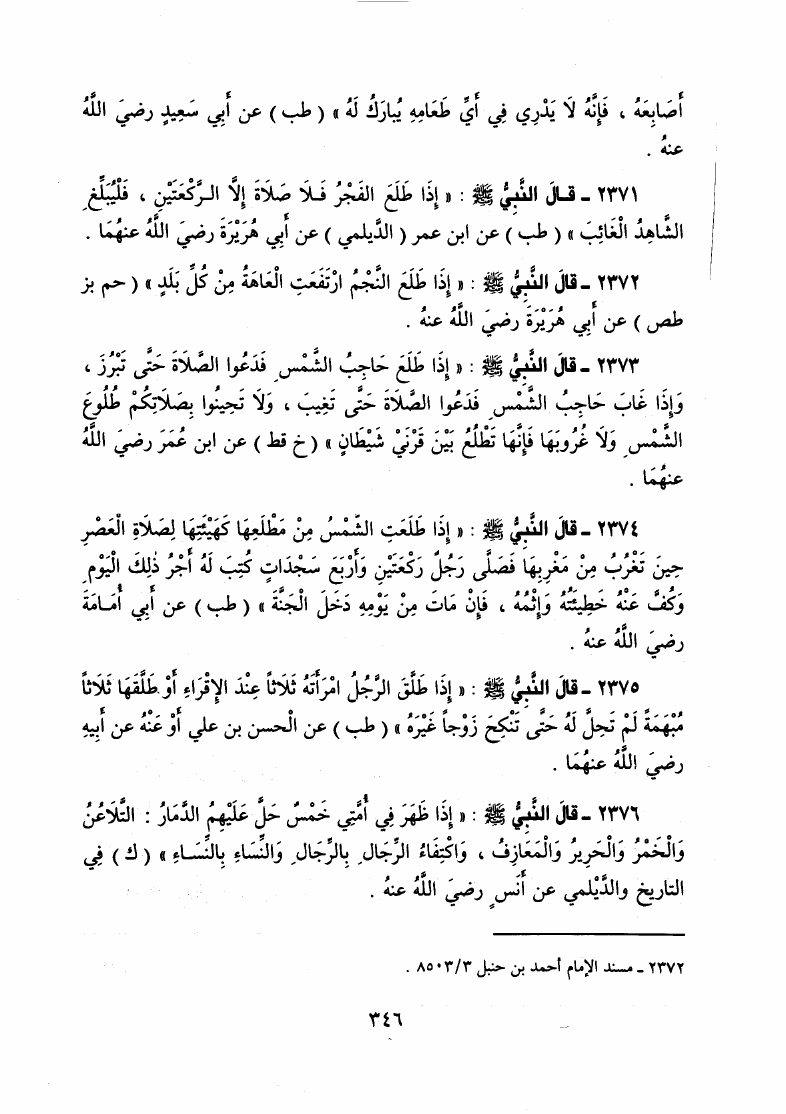 أَصَابِعَهُ ، فَإِنَّهُ لَا يَدْرِي فِي أَيِّ طَعَامِهِ يُبَارَكُ لَهُ » ( طب ) عن أَبِي سَعِيدٍ رضيَ اللَّهُ
عنهُ .
٢٣٧١ - قـالَ النَّبِيُّ ﷺ : « إِذَا طَلَعَ الفَجْرُ فَـلَا صَلَاةَ إِلَّا الـرَّكْعَتَيْنِ ، فَلْيُبَلِّغِ
الشَّاهِدُ الْغَائِبَ » ( طب ) عن ابن عمر ( الدَّيلمي ) عن أَبِي هُرَيْرَةَ رضيَ اللَّهُ عنهُمَا .
٢٣٧٢ - قالَ النَّبِيُّ ﷺ : « إِذَا طَلَعَ النَّجْمُ ارْتَفَعَتِ الْعَاهَةُ مِنْ كُلِّ بَلَدٍ » ( حم بز
طص ) عن أَبِي هُرَيْرَةَ رضيَ اللَّهُ عنهُ .
٢٣٧٣ - قالَ النَّبِيُّ ﷺ : « إِذَا طَلَعَ حَاجِبُ الشَّمْسِ فَدَعُوا الصَّلَاةَ حَتَّى تَبْرُزَ ،
وَإِذَا غَابَ حَاجِبُ الشَّمْسِ فَدَعُوا الصَّلَاةَ حَتَّى تَغِيبَ ، وَلَا تَحِينُوا بِصَلَاتِكُمْ طُلُوعَ
الشَّمْسِ وَلَا غُرُوبَهَا فَإِنَّهَا تَطْلُعُ بَيْنَ قَرْنَيْ شَيْطَانٍ » ( خ قط ) عن ابن عُمَرَ رضيَ اللَّهُ
عنهُمَا .
٢٣٧٤ - قالَ النَّبِيُّ ﷺ : « إِذَا طَلَعَتِ الشَّمْسُ مِنْ مَطْلَعِهَا كَهَيْئَتِهَا لِصَلَاةِ الْعَصْرِ
حِينَ تَغْرُبُ مِنْ مَغْرِبِهَا فَصَلَّى رَجُلٌ رَكْعَتَيْنِ وَأَرْبَعَ سَجْدَاتٍ كُتِبَ لَهُ أَجْرُ ذٰلِكَ الْيَوْمِ
وَكُفَّ عَنْهُ خَطِيئَتُهُ وَإِثْمُهُ ، فَإِنْ مَاتَ مِنْ يَوْمِهِ دَخَلَ الْجَنَّةَ » ( طب ) عن أَبِي أُمَـامَةَ
رضيَ اللَّهُ عنهُ .
٢٣٧٥ - قالَ النَّبِيُّ ﷺ : « إِذَا طَلَّقَ الرَّجُلُ امْرَأَتَهُ ثَلَاثاً عِنْدَ الإِقْرَاءِ أَوْ طَلَّقَهَا ثَلَاثاً
مُبْهَمَةً لَمْ تَحِلَّ لَهُ حَتَّى تَنْكِحَ زَوْجاً غَيْرَهُ » ( طب ) عن الْحسن بن علي أَوْ عَنْهُ عن أَبِيهِ
رضيَ اللَّهُ عنهُمَا .
٢٣٧٦ - قالَ النَّبِيُّ ﷺ : « إِذَا ظَهَرَ فِي أُمَّتِي خَمْسٌ حَلَّ عَلَيْهِمُ الدَّمَارُ : التَّلَاعُنُ
وَالْخَمْرُ وَالْحَرِيرُ وَالْمَعَازِفُ ، وَاكْتِفَاءُ الرِّجَالِ بِالرِّجَالِ وَالنِّسَاءِ بِالنِّسَاءِ » ( ك ) فِي
التاريخ والدَّيْلمي عن أَنسٍ رضيَ اللَّهُ عنهُ .
٢٣٧٢ - مسند الإمام أحمد بن حنبل ٨٥٠٣/٣ .
٣٤٦